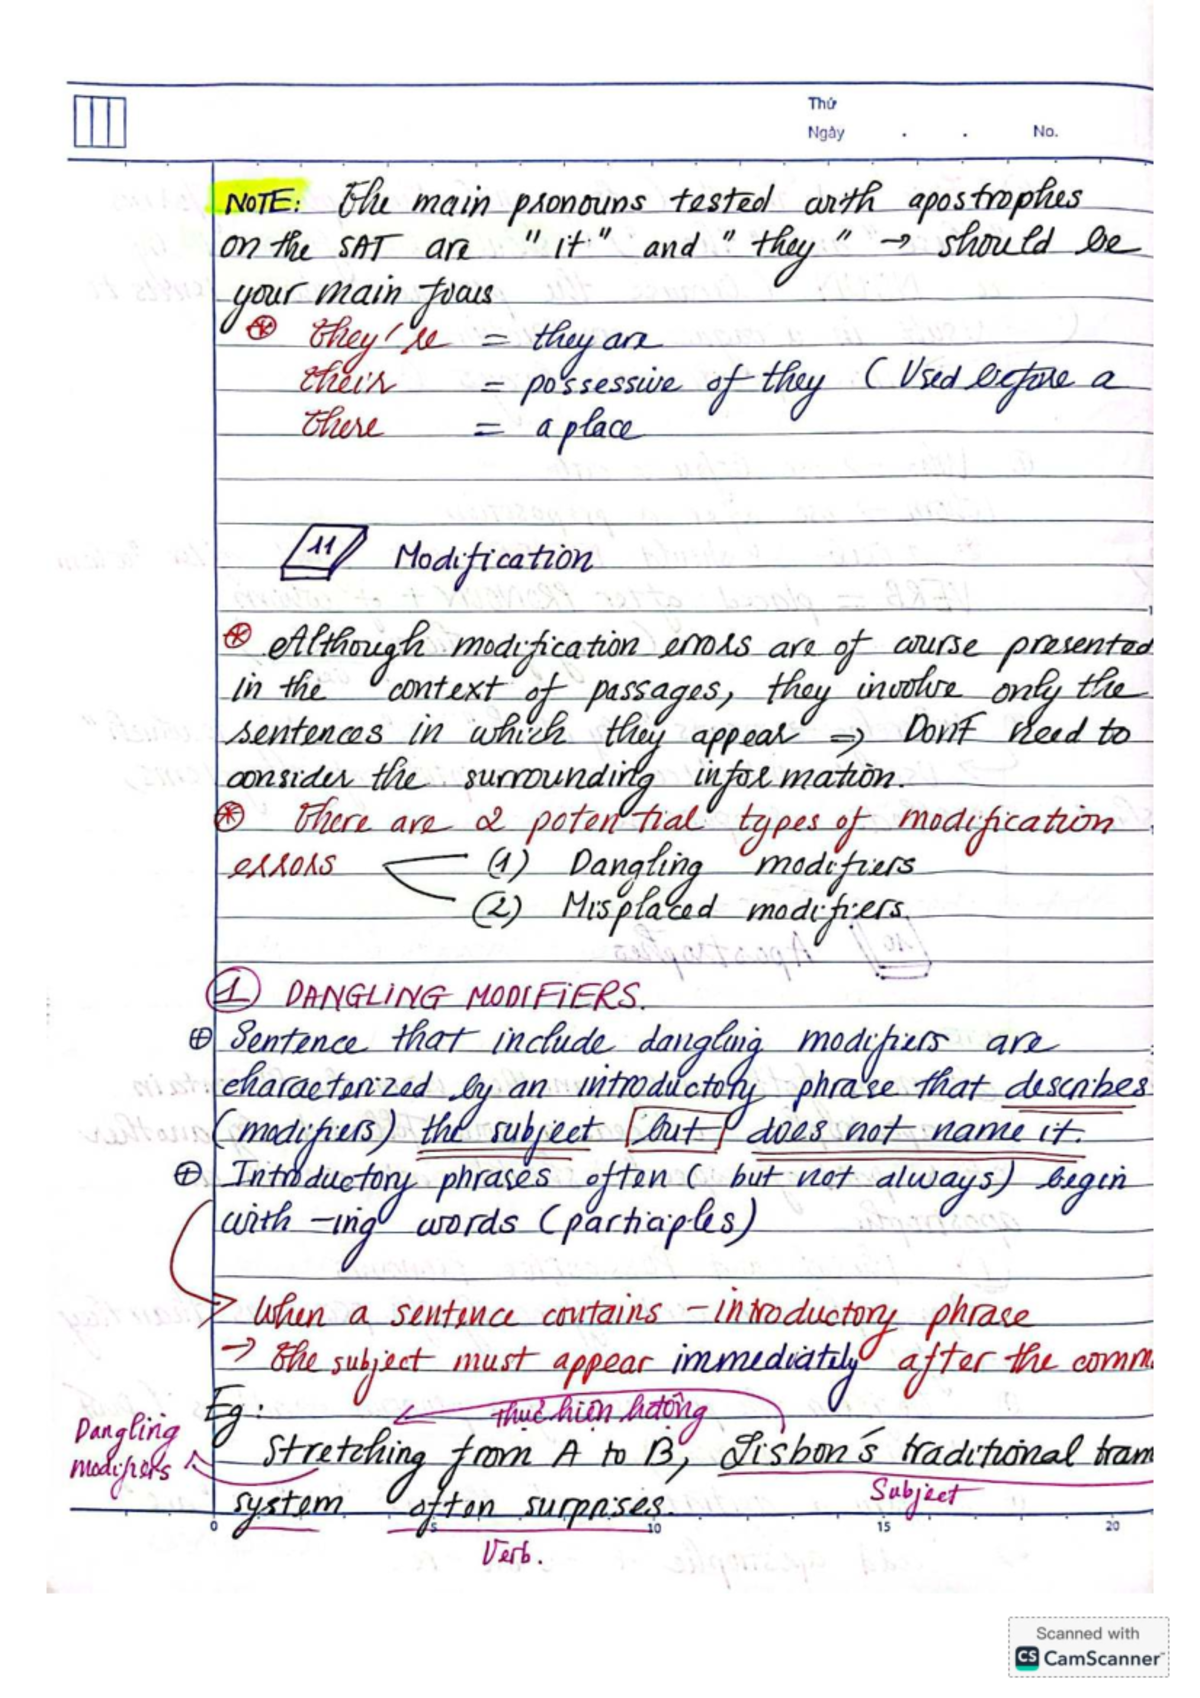 Thứ
Ngày . . No.
NOTE: The main pronouns tested with apostrophes
on the SAT are "it" and "they" → should be
your main focus
they're = they are
their = possessive of they (Used before a
there = a place
11 Modification
Although modification errors are of course presented
in the context of passages, they involve only the
sentences in which they appear => Don't need to
consider the surrounding information.
There are 2 potential types of modification
errors (1) Dangling modifiers
(2) Misplaced modifiers.
1 DANGLING MODIFIERS.
Sentence that include dangling modifiers are
characterized by an introductory phrase that describes
(modifiers) the subject but does not name it.
Introductory phrases often (but not always) begin
with -ing words (participles)
When a sentence contains - introductory phrase
→ the subject must appear immediately after the comm
Eg: thực hiện hđộng
Dangling modifiers
Stretching from A to B, Lisbon's traditional tram
Subject
system often surprises.
0 5 10 15 20
Verb.
Scanned with
CS CamScanner